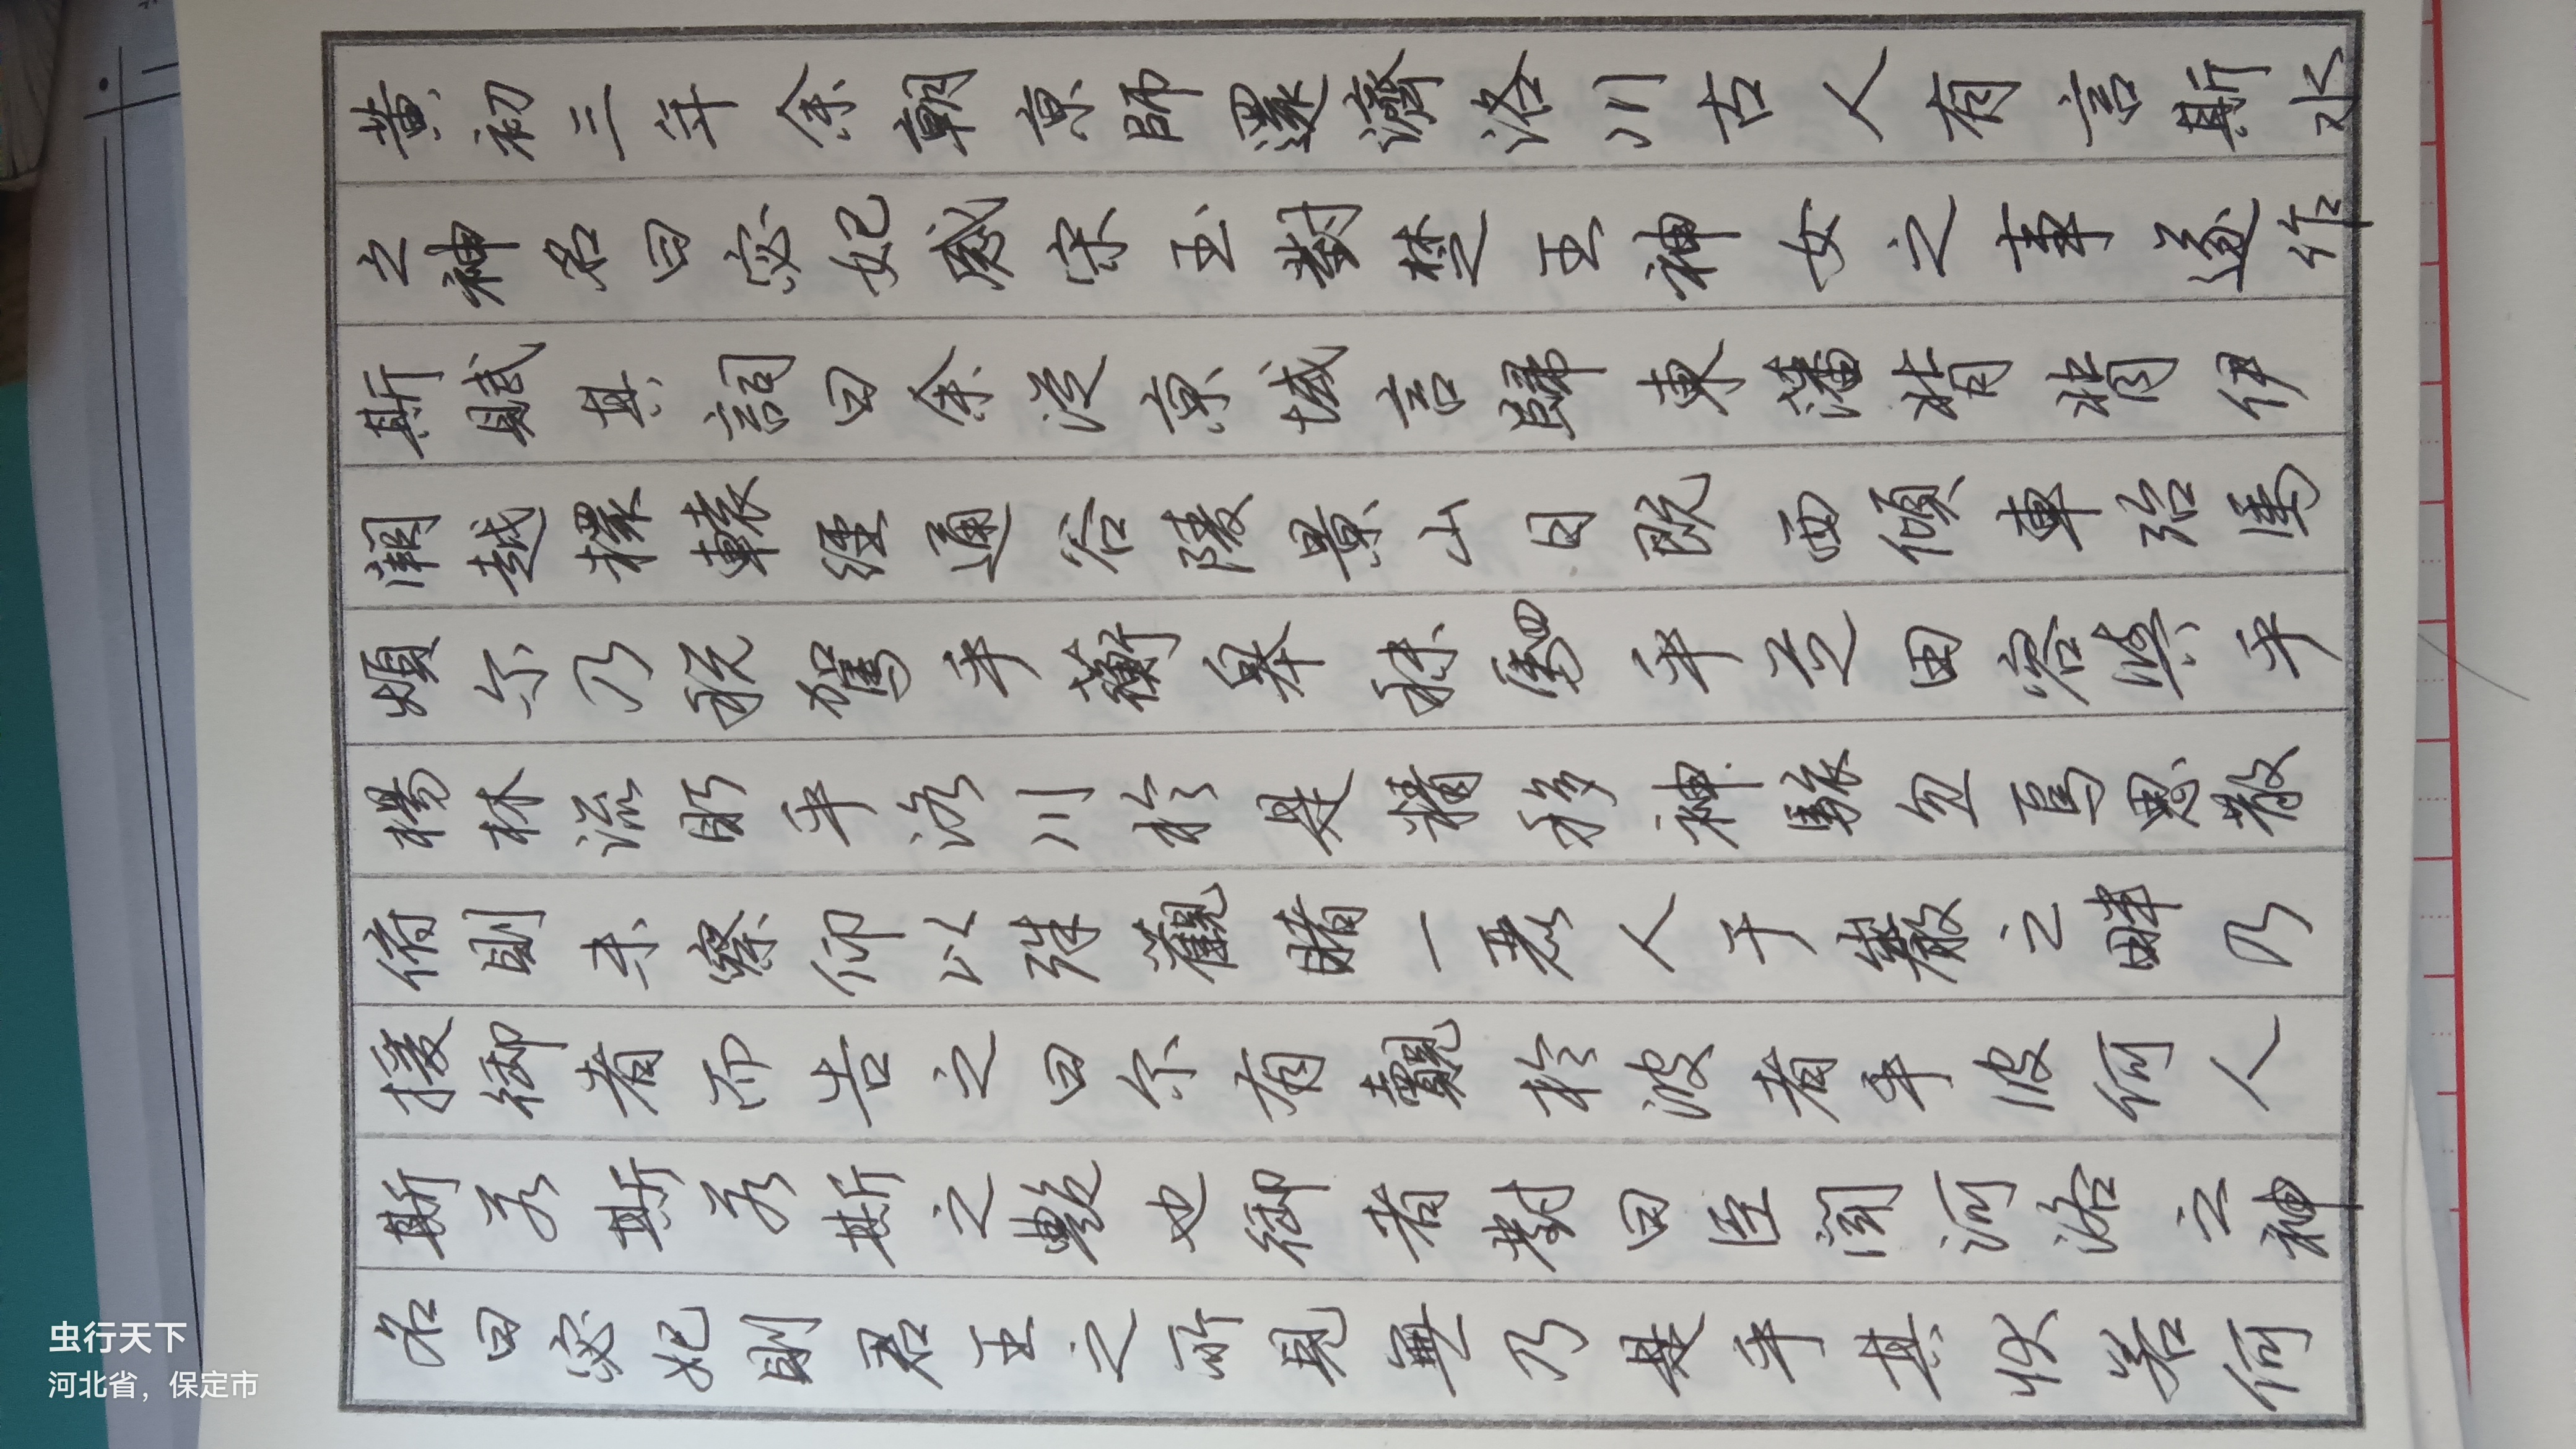 黃初三年余朝京師還濟洛川古人有言斯水
之神名曰宓妃感宋玉對楚王神女之事遂作
斯賦其詞曰余從京域言歸東藩背背伊
闕越轘轅經通谷陵景山日既西傾車殆馬
煩尔乃税駕乎蘅皋秣駟乎芝田容與乎
楊林流眄乎洛川於是精移神駭忽焉思散
俯則未察仰以殊觀睹一麗人于巖之畔乃
援御者而告之曰尔有覿於彼者乎彼何人
斯若斯若斯之艷也御者對曰臣聞河洛之神
名曰宓妃則君王之所見無乃是乎其狀若何
虫行天下
河北省，保定市